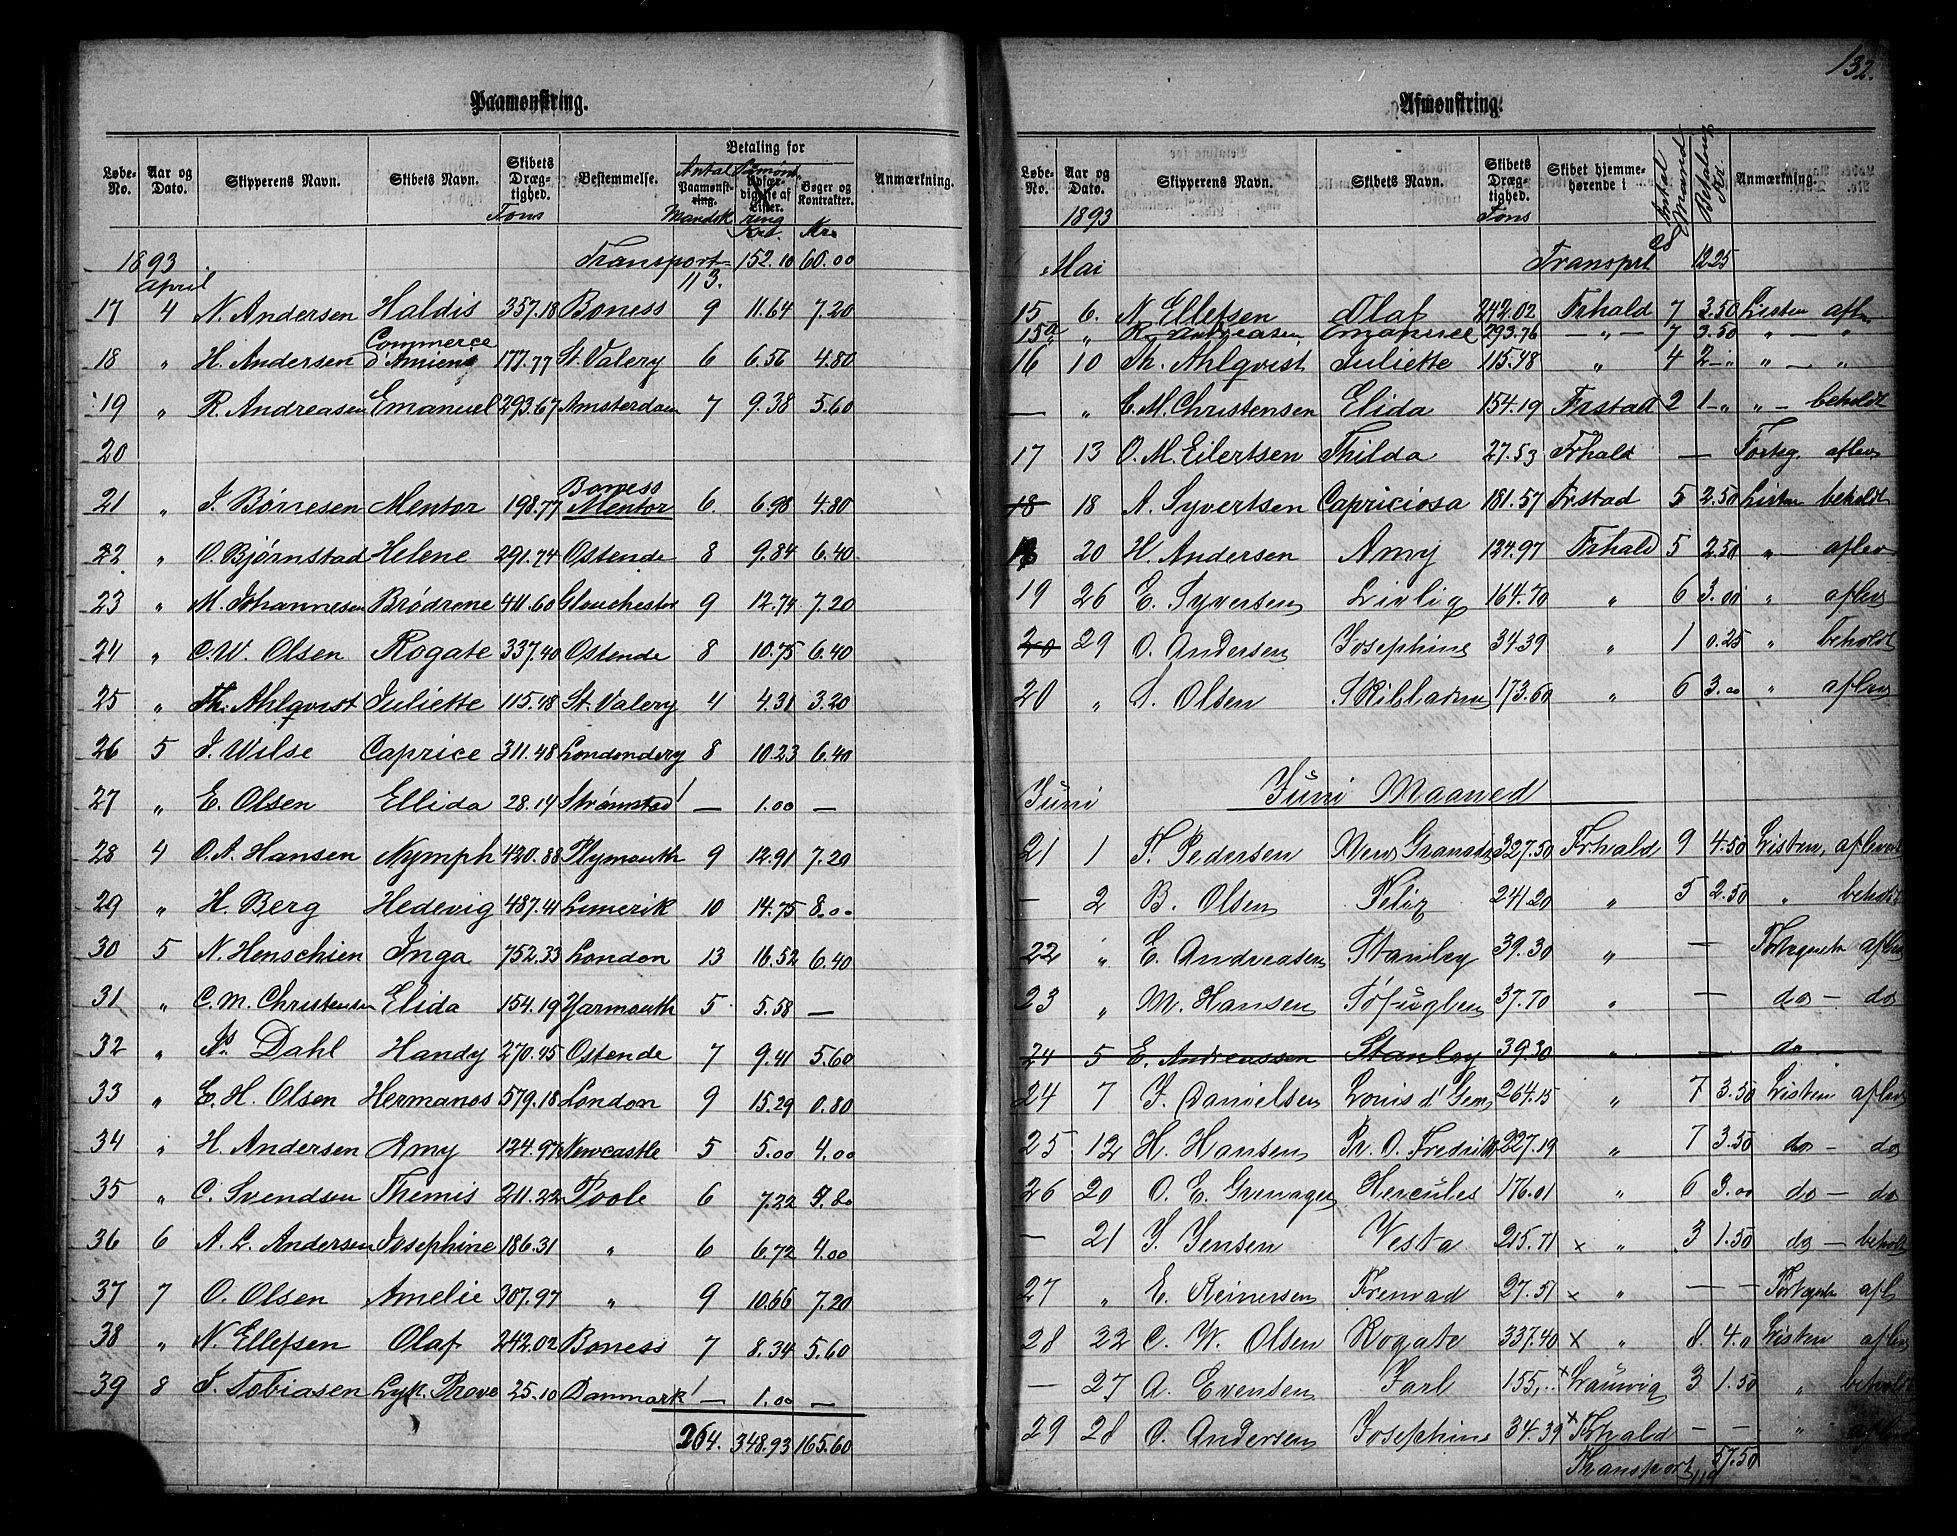 132.
Paamønstring.
Løbe-No. | Aar og Dato. | Skipperens Navn. | Skibets Navn. | Skibets Dræg-tighed. Tons | Bestemmelse. | Betaling for | Antal Paamønst-ring. Mandsk | Bøger og Kontrakter. Kr. | Anmærkning.
1893 Transport 113. 152.10 60.00
April
17 4 N. Andersen Haldis 357.18 Boness 9 11.64 7.20
18 " H. Andersen Commerce d'Amiens 177.77 St. Valery 6 6.56 4.80
19 " R. Andreasen Emanuel 293.67 Amsterdam 7 9.38 5.60
20
21 " J. Børresen Mentor 198.77 Boness Mentor 6. 6.98 4.80
22 " O. Bjørnstad Helene 291.74 Ostende 8 9.84 6.40
23 " M. Johannesen Brødrene 411.60 Glouchester 9 12.74 7.20
24 " C. W. Olsen Rogate 337.40 Ostende 8 10.75 6.40
25 " Th. Ahlqvist Juliette 115.48 St. Valery 4 4.31 3.20
26 5 J. Wilse Caprice 311.48 Londondery 8 10.23 6.40
27 " E. Olsen Ellida 28.14 Strømstad ! — 1.00 —
28 4 O. A. Hansen Nymph 420.88 Plymouth 9 12.91 7.20
29 " H. Berg Hedevig 487.41 Limerik 10 14.75 8.00
30 5 N. Henschien Inga 752.33 London 13 16.52 6.40
31 " C. M. Christensen Elida 154.19 Yarmouth 5 5.58 —
32 " Ns Dahl Handy 270.45 Ostende 7 9.41 5.60
33 " E. H. Olsen Hermanos 579.18 London 9 15.29 0.80
34 " H. Andersen Amy 124.97 Newcastle 5 5.00 4.00
35 " C. Svendsen Themis 211.22 Poole 6 7.22
36 6 A. L. Andersen Josephine 186.31 " 6 6.72 4.00
37 7 O. Olsen Amelie 307.97 " 9 10.66 7.20
38 " N. Ellefsen Olaf 242.02 Boness 7 8.34 5.60
39 8 J. Tobiasen Lyk. Prøve 25.10 Danmark ! — 1.00 —
264. 348.93 165.60
Afmønstring.
Løbe-No. | Aar og Dato. 1893 | Skipperens Navn. | Skibets Navn. | Skibets Dræg-tighed. Tons | Skibet hjemme-hørende i | Antal Mand | Betaling Kr. | Anmærkning.
Mai Transport 12.25
15 6. N. Ellefsen Olaf 242.02 Frhald 7 3.50 Listen aflev
15a " R. Andreasen Emanuel 293.76 — " — 7 3.50 " — "
16 10 Th. Ahlqvist Juliette 115.48 " 4 2 — " " — "
— " C. M. Christensen Elida 154.19 Frstad 2 1 — " " — beholdt
17 13 O. M. Eilertsen Thilda 27.53 Frhald — Forteg. aflev
18 18 A. Syvertsen Capriciosa 181.57 Frstad 5 2.50 Listen beholdt
18 20 H. Andersen Amy 124.97 Frhald 5 2.50 " aflev
19 26 E. Syversen Livlig 164.70 " 6 3.00 " aflev
20 29 O. Andersen Josephine 34.39 " 1 0.25 " beholdt
20 " S. Olsen Skibladner 173.60 " 6 3.00 " aflev
Juni Juni Maaned
21 1 T. Pedersen New Granada 327.50 Frhald 9 4.50 Listen, aflevert
— 2 B. Olsen Felix 241.20 " 5 2.50 " beholdt
22 " E. Andreasen Stanley 39.30 " — Fortegnelse aflev
23 " M. Hansen Søfuglen 37.70 " — do — do
24 5 E. Andreassen Stanley 39.30 " — do
24 7 J. Danielsen Louis d' Geer 264.15 " 7 3.50 Listen aflev
25 12 H. Hansen Pr. O. Fredrik 227.19 " 7 3.50 do — do
26 20 O. E. Grenager Hercules 176.01 " 6 3.00 do — do
— 21 J. Jensen Vesta 215.71 × " 3 1.50 do — beholdt
27 " E. Reinersen Fremad 27.51 × " — — Fortegnelse afl
28 22 C. W. Olsen Rogate 337.40 × " 8. 4.0 Listen aflev
— 27 A. Evensen Jarl 155,.. × Laurvig 3 1.50 " beholdt
29 28 O. Andersen Josephine 34.39 × Frhald — — " aflev
Transport 119 57.50